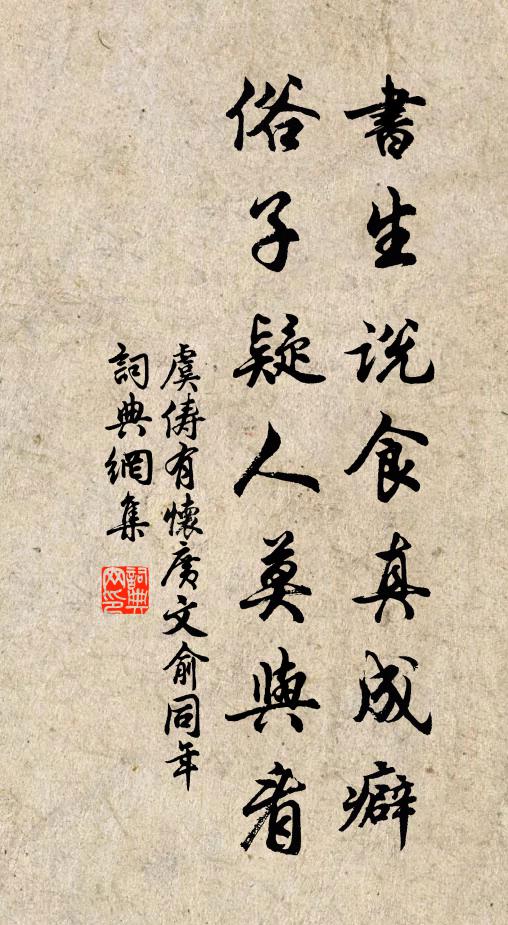 書生説食真成癖
俗子疑人莫與看
虞儔有懷廣文俞同年
詞典網集
詞典网印